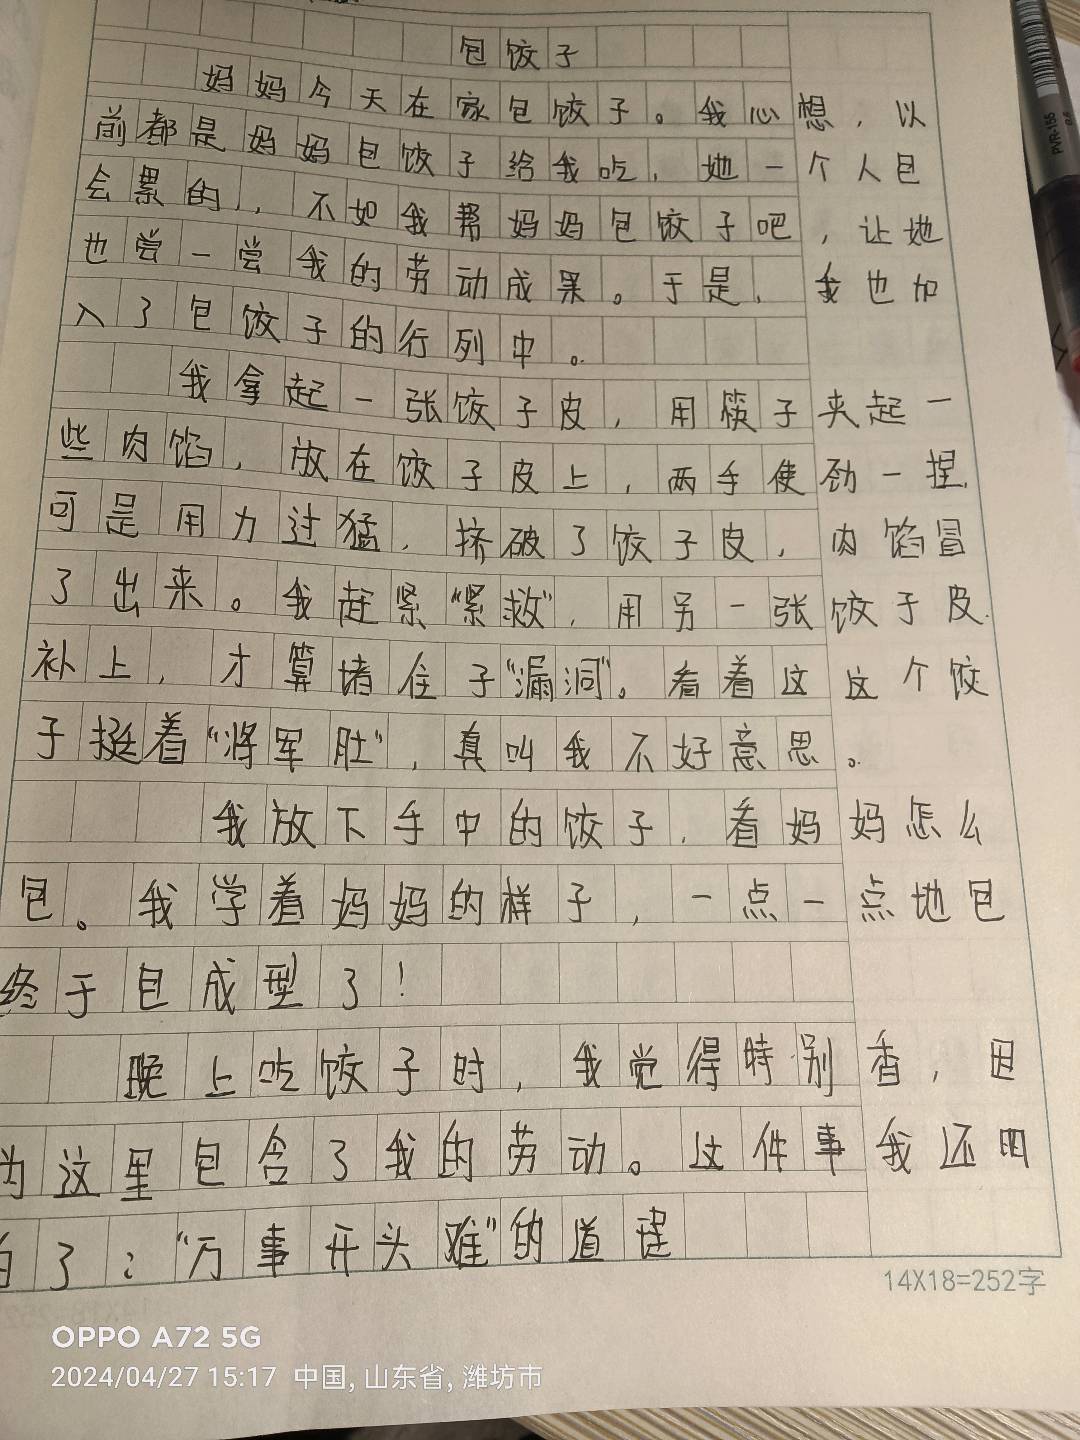 包饺子
妈妈今天在家包饺子。我心想，以
前都是妈妈包饺子给我吃，她一个人包
会累的，不如我帮妈妈包饺子吧，让她
也尝一尝我的劳动成果。于是，我也加
入了包饺子的行列中。
我拿起一张饺子皮，用筷子夹起一
些肉馅，放在饺子皮上，两手使劲一捏，
可是用力过猛，挤破了饺子皮，肉馅冒
了出来。我赶紧“紧救”，用另一张饺子皮
补上，才算堵住子“漏洞”。看着这这个饺
子挺着“将军肚”，真叫我不好意思。
我放下手中的饺子，看妈妈怎么
包。我学着妈妈的样子，一点一点地包
终于包成型了！
晚上吃饺子时，我觉得特别香，因
为这里包含了我的劳动。这件事我还明
白了：“万事开头难”的道理
14X18=252字
PVR-155
OPPO A72 5G
2024/04/27 15:17 中国, 山东省, 潍坊市